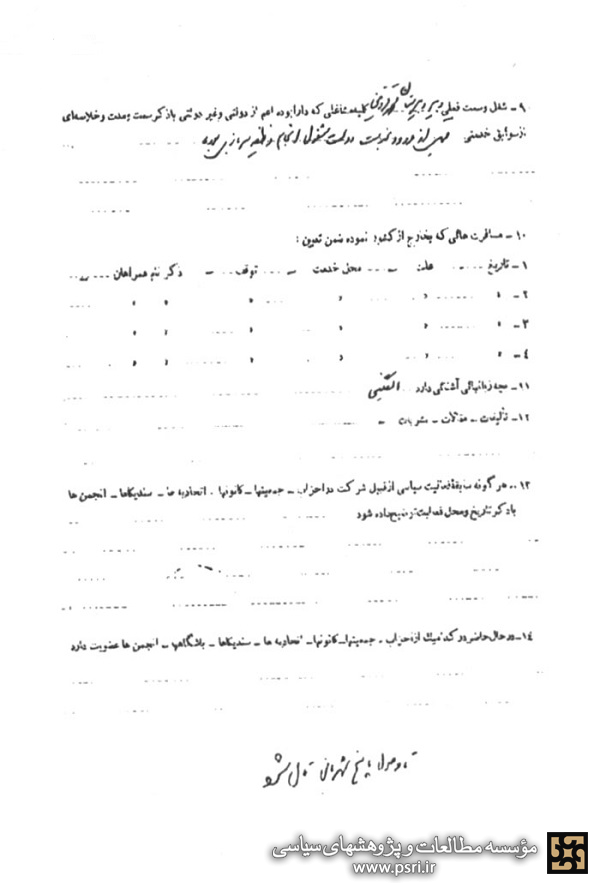 ۹ـ شغل وسمت فعلی دبیر دبیرستان کلیه مشاغلی که دارا بوده اعم از دولتی وغیر دولتی با ذکر سمت ومدت وخلاصه‌ای
از سوابق خدمتی قبل از ورود بخدمت دولت مشغول انجام وظیفه سربازی بوده
۱۰ـ مسافرت هائی که بخارج از کشور نموده ضمن تعیین :
۱ـ تاریخ علت ـ محل خدمت ـ توقف ـ ذکر نام همراهان ـ
۲ـ " " " " " "
۳ـ " " " " " "
۴ـ " " " " " "
۱۱ـ بچه زبانهائی آشنائی دارد انگلیسی
۱۲ـ تألیفات ـ مقالات ـ نشریات ـ
۱۳ـ هر گونه سابقه فعالیت سیاسی از قبیل شرکت در احزاب ـ جمعیتها ـ کانونها ـ اتحادیه ها ـ سندیکاها ـ انجمن ها
با ذکر تاریخ و محل فعالیت توضیح داده شود
۱۴ـ در حال حاضر در کدامیک از احزاب ـ جمعیتها ـ کانونها ـ اتحادیه ها ـ سندیکاها ـ باشگاهها ـ انجمن ها عضویت دارد
تا وصول پاسخ شهربانی
مؤسسه مطالعات و پژوهشهای سیاسی
www.psri.ir